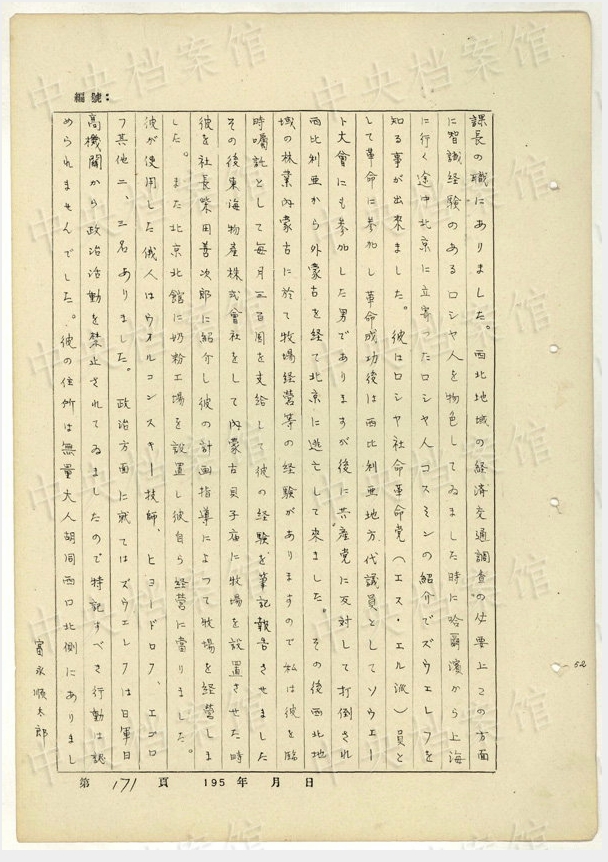 編號：
課長の職にありました。西北地域の経済交通調査の必要上この方面
に智識経験のあるロシヤ人を物色してゐました時に哈爾濱から上海
に行く途中北京に立寄つたロシヤ人コスミンの紹介でズウエレフを
知る事が出来ました。彼はロシヤ社命革命党（エス・エル派）員と
して革命に参加し革命成功後は西比利亜地方代議員としてソウエー
ト大會にも参加した男でありますが後に共産党に反対して打倒され
西比利亜から外蒙古を経て北京に逃亡して来ました。その後西北地
域の林業内蒙古に於て牧場経営等の経験がありますので私は彼を臨
時囑託として毎月三百圓を支給して彼の経験を筆記報告させました
その後東海物産株式會社をして内蒙古貝子庙に牧場を設置させた時
彼を社長柴田善次郎に紹介し彼の計画指導によつて牧場を経営しま
した。また北京北館に奶粉工場を設置し彼自ら経営に當りました。
彼が使用した俄人はウオルコンスキー技師、ヒョードロフ、エゴロ
フ其他二、三名ありました。政治方面に就てはズウエレフは日軍日
高機關から政治活動を禁止されてゐましたので特記すべき行動は認
められませんでした。彼の住所は無量大人胡同西口北側にありまし
富永順太郎
第 171 頁 195 年 月 日
52
中央档案馆